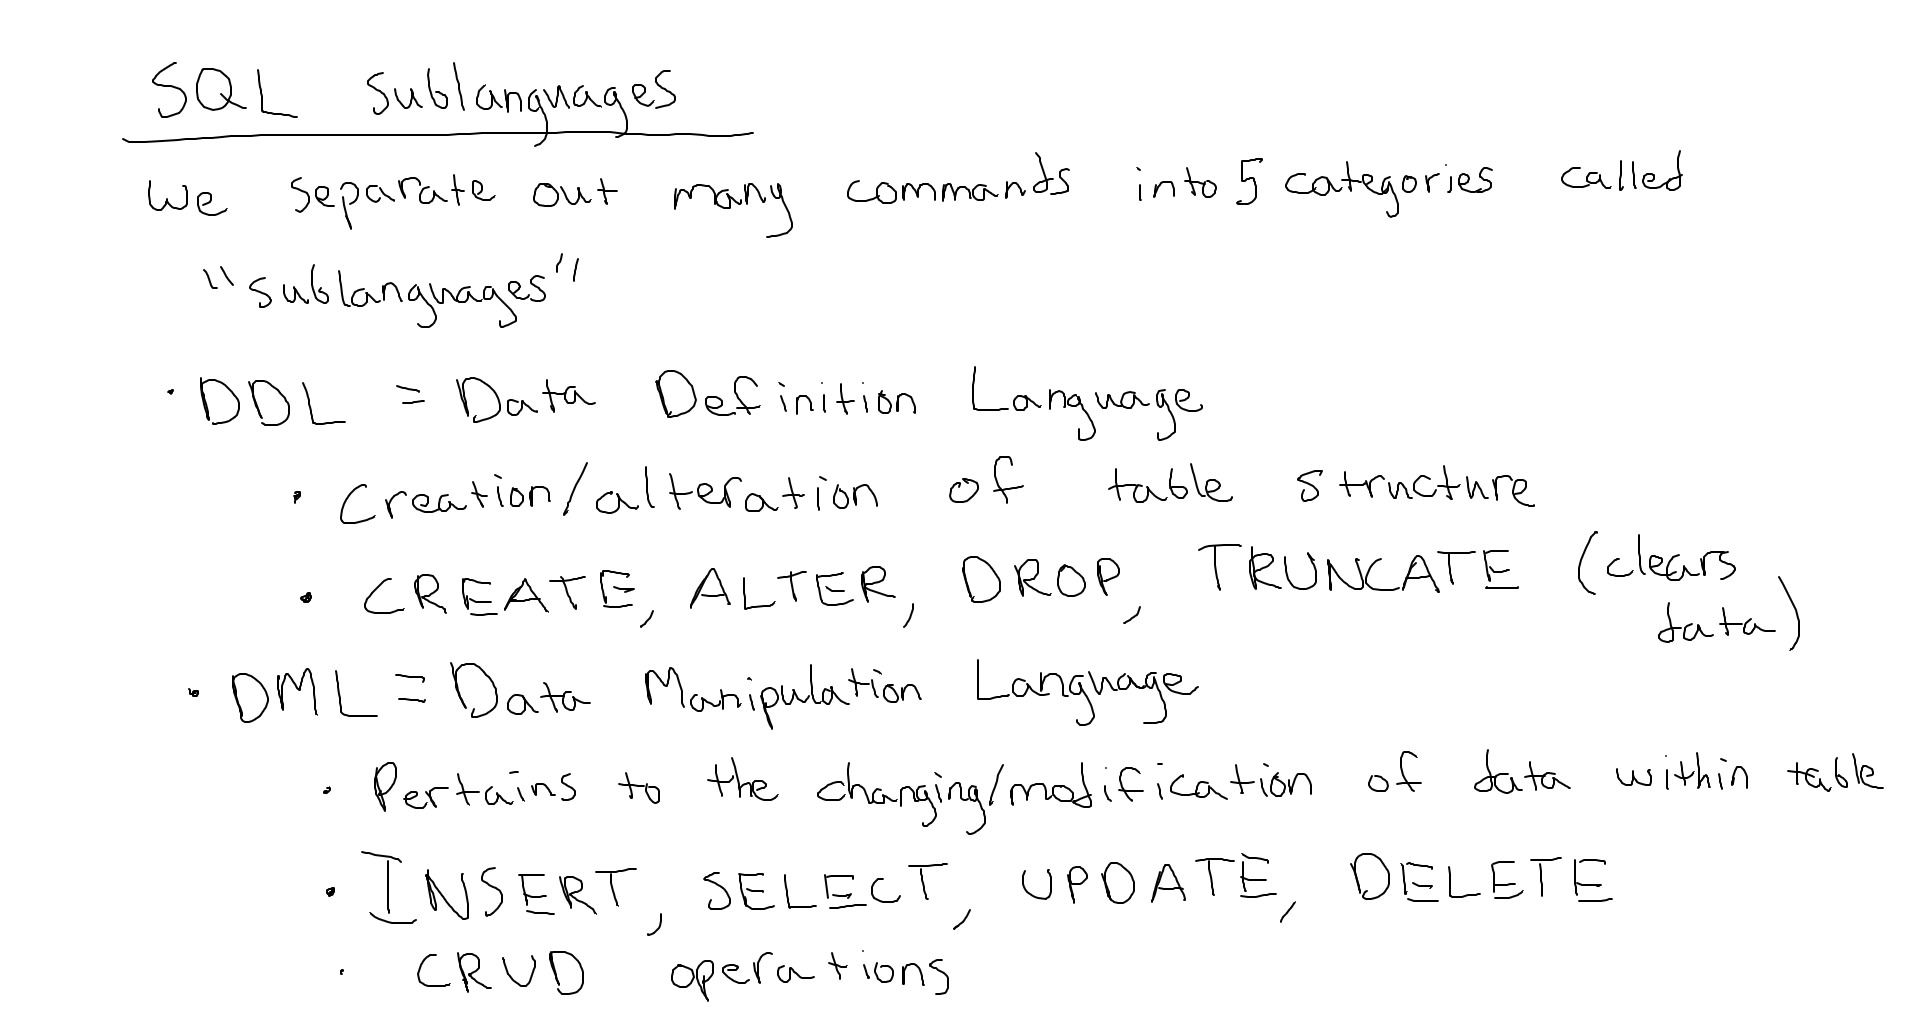 SQL sublanguages
We separate out many commands into 5 categories called
"sublanguages"
· DDL = Data Definition Language
· Creation/alteration of table structure
· CREATE, ALTER, DROP, TRUNCATE (clears
data)
· DML = Data Manipulation Language
· Pertains to the changing/modification of data within table
· INSERT, SELECT, UPDATE, DELETE
· CRUD operations